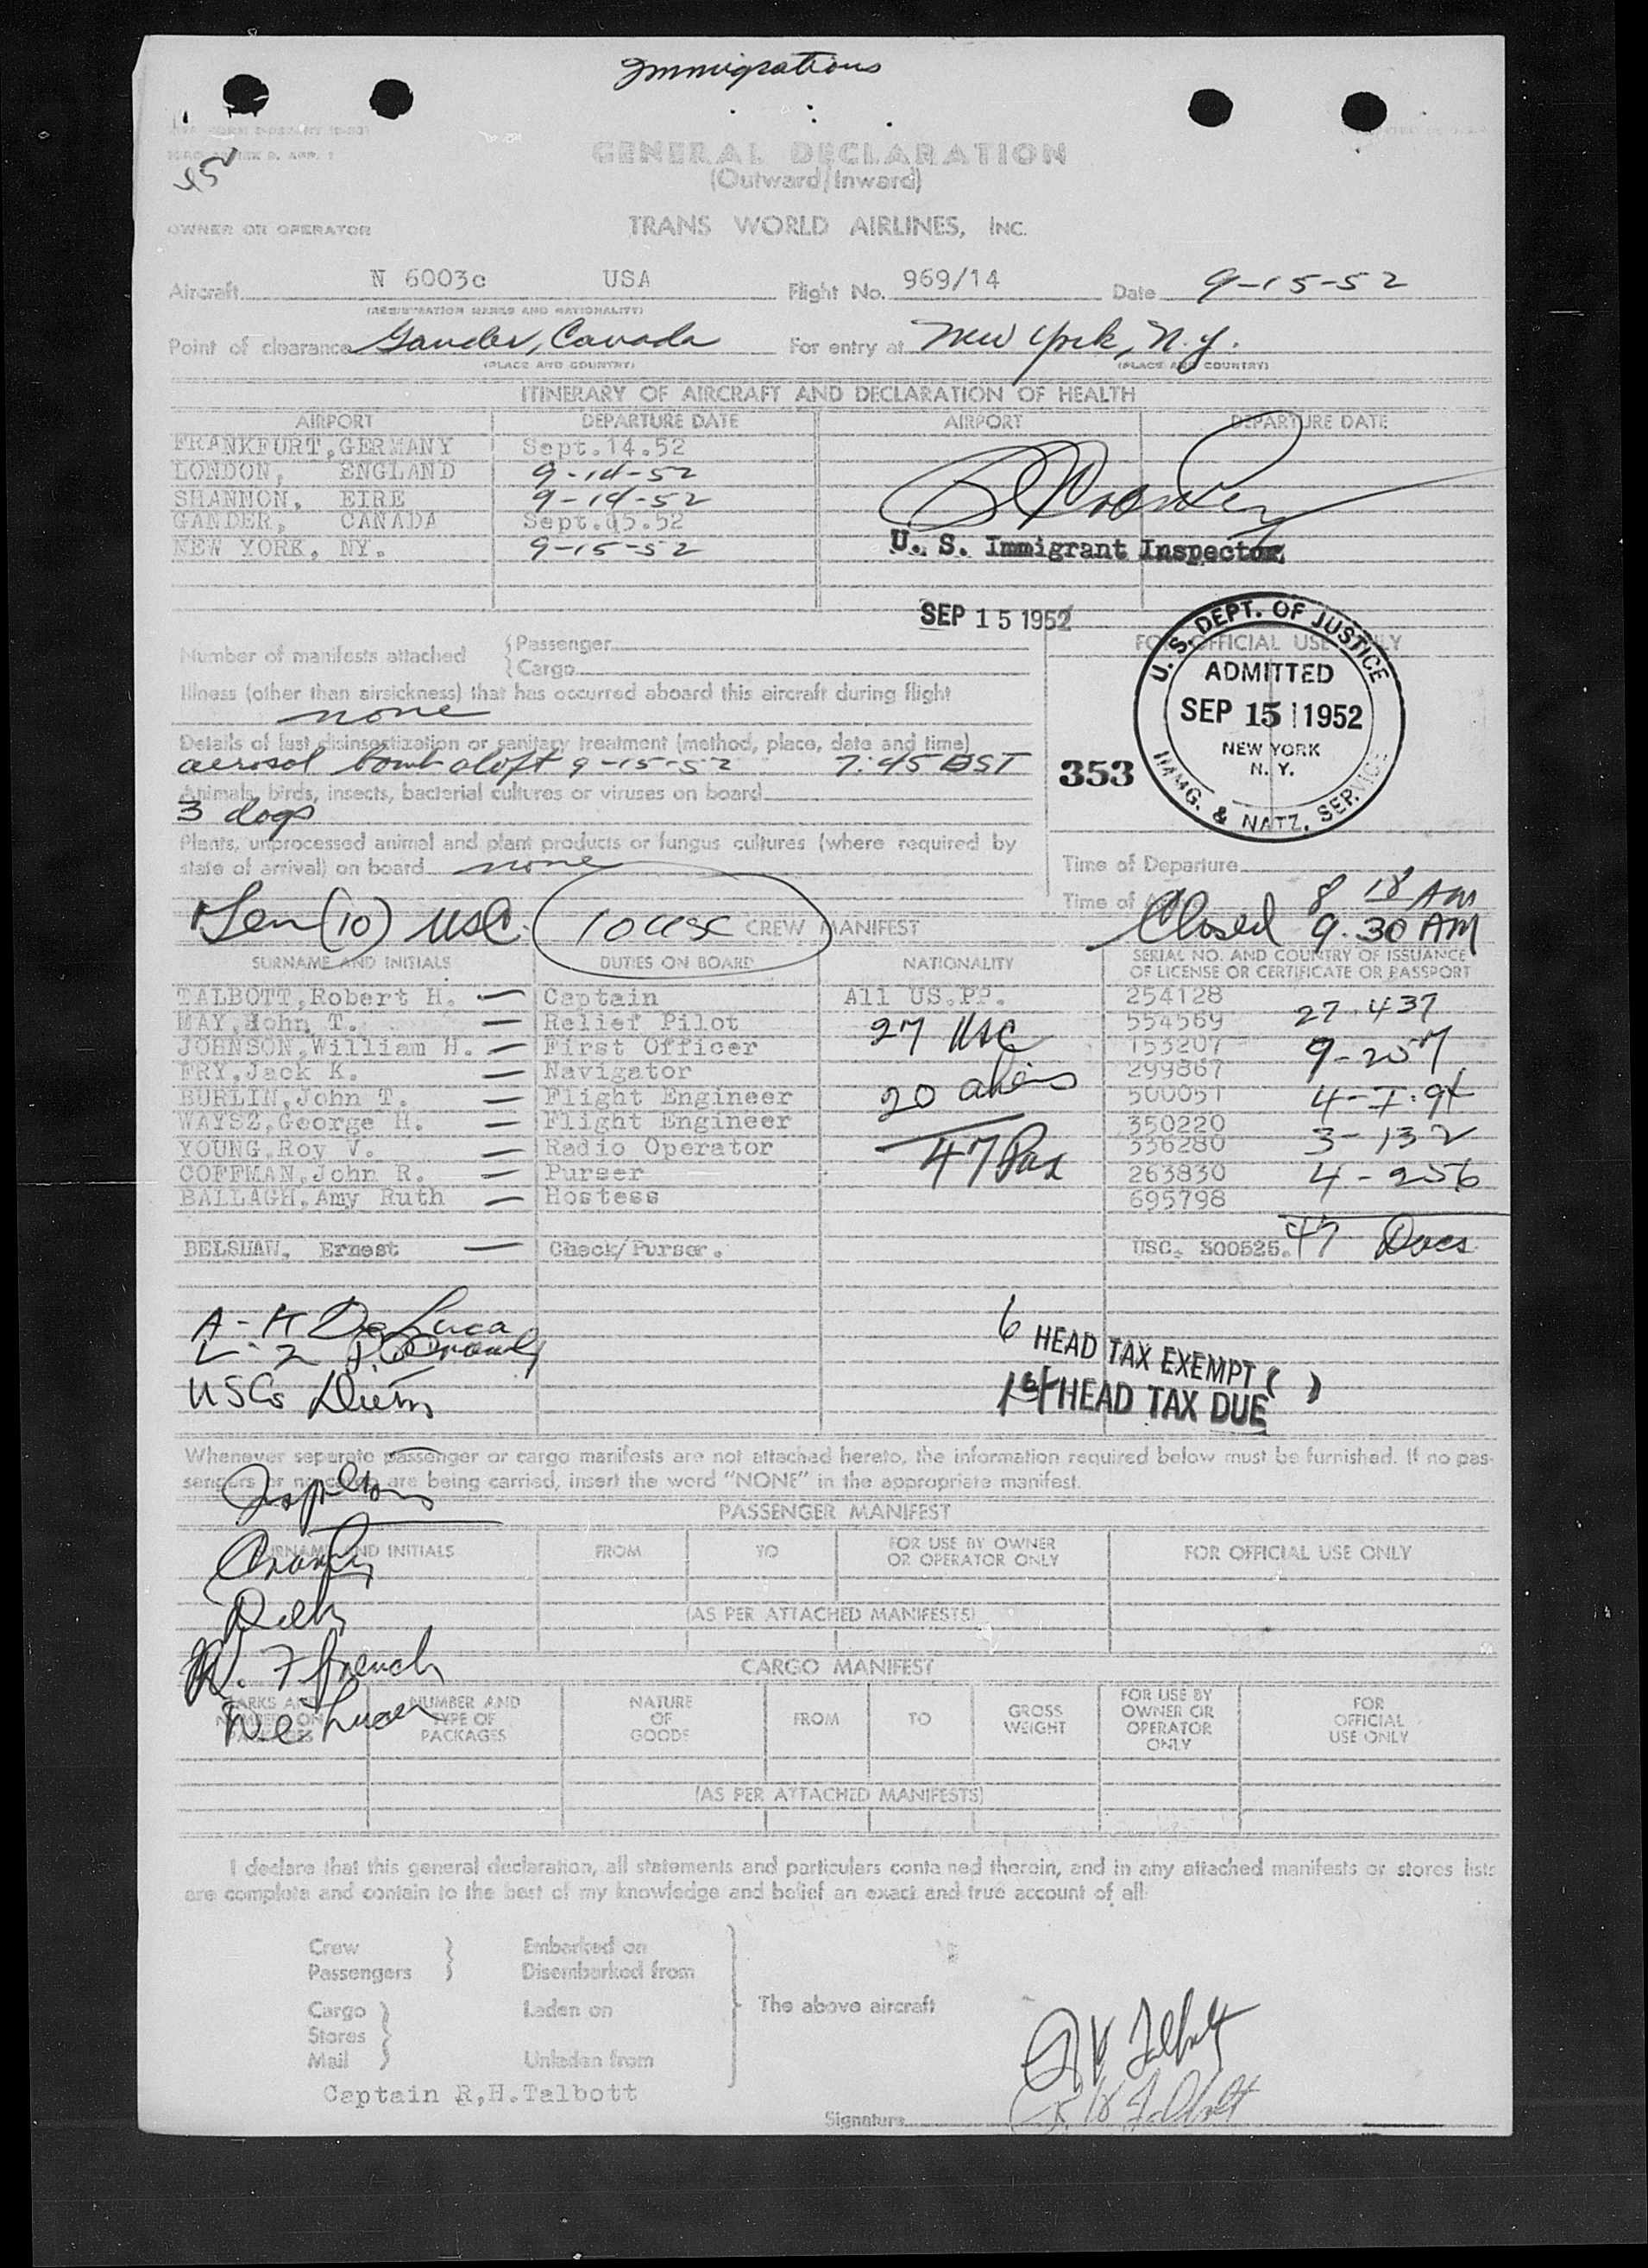 Immigrations
GENERAL DECLARATION
(Outward/Inward)
OWNER OR OPERATOR TRANS WORLD AIRLINES, INC.
Aircraft N 6003c USA Flight No. 969/14 Date 9-15-52
(REGISTRATION MARKS AND NATIONALITY)
Point of clearance Gander, Canada For entry at New York, N.Y.
(PLACE AND COUNTRY) (PLACE AND COUNTRY)
ITINERARY OF AIRCRAFT AND DECLARATION OF HEALTH
AIRPORT DEPARTURE DATE AIRPORT DEPARTURE DATE
FRANKFURT, GERMANY Sept.14.52
LONDON, ENGLAND 9-14-52
SHANNON, EIRE 9-14-52
GANDER, CANADA Sept.15.52
NEW YORK, NY. 9-15-52
U. S. Immigrant Inspector
SEP 15 1952
FOR OFFICIAL USE ONLY
U. S. DEPT. OF JUSTICE
ADMITTED
SEP 15 1952
NEW YORK
N. Y.
IMMG. & NATZ. SERVICE
353
Number of manifests attached Passenger
Cargo
Illness (other than airsickness) that has occurred aboard this aircraft during flight
none
Details of last disinsectization or sanitary treatment (method, place, date and time)
aerosol bomb aloft 9-15-52 7:45 EST
Animals, birds, insects, bacterial cultures or viruses on board
3 dogs
Plants, unprocessed animal and plant products or fungus cultures (where required by
state of arrival) on board none
Time of Departure
Time of 8 18 AM
Ten (10) USC 10 USC CREW MANIFEST Closed 9.30 AM
SURNAME AND INITIALS DUTIES ON BOARD NATIONALITY SERIAL NO. AND COUNTRY OF ISSUANCE
OF LICENSE OR CERTIFICATE OR PASSPORT
TALBOTT, Robert H. — Captain All US.PP. 254128
MAY, John T. — Relief Pilot 27 USC 554569 27.437
JOHNSON, William H. — First Officer 153207 9-257
FRY, Jack K. — Navigator 20 aliens 299867
BURLIN, John T. — Flight Engineer 500051
WAYS2, George H. — Flight Engineer 350220
YOUNG, Roy V. — Radio Operator 47 Pax 536280 3-132
COFFMAN, John R. — Purser 263830 4-256
BALLAGH, Amy Ruth — Hostess 695798
BELSHAW, Ernest — Check/Purser. USC. 300525. 47 Docs
A-K De Luca
L-Z
USCs
6 HEAD TAX EXEMPT ( )
HEAD TAX DUE
Whenever separate passenger or cargo manifests are not attached hereto, the information required below must be furnished. If no pas-
sengers or no cargo are being carried, insert the word "NONE" in the appropriate manifest.
Inspectors
PASSENGER MANIFEST
SURNAME AND INITIALS FROM TO FOR USE BY OWNER
OR OPERATOR ONLY FOR OFFICIAL USE ONLY
(AS PER ATTACHED MANIFESTS)
CARGO MANIFEST
MARKS AND
NUMBERS ON
PACKAGES NUMBER AND
TYPE OF
PACKAGES NATURE
OF
GOODS FROM TO GROSS
WEIGHT FOR USE BY
OWNER OR
OPERATOR
ONLY FOR
OFFICIAL
USE ONLY
(AS PER ATTACHED MANIFESTS)
I declare that this general declaration, all statements and particulars contained therein, and in any attached manifests or stores lists
are complete and contain to the best of my knowledge and belief an exact and true account of all:
Crew Embarked on
Passengers Disembarked from
Cargo Laden on The above aircraft
Stores
Mail Unladen from
Captain R,H.Talbott
R H Talbott
Signature R H Talbott